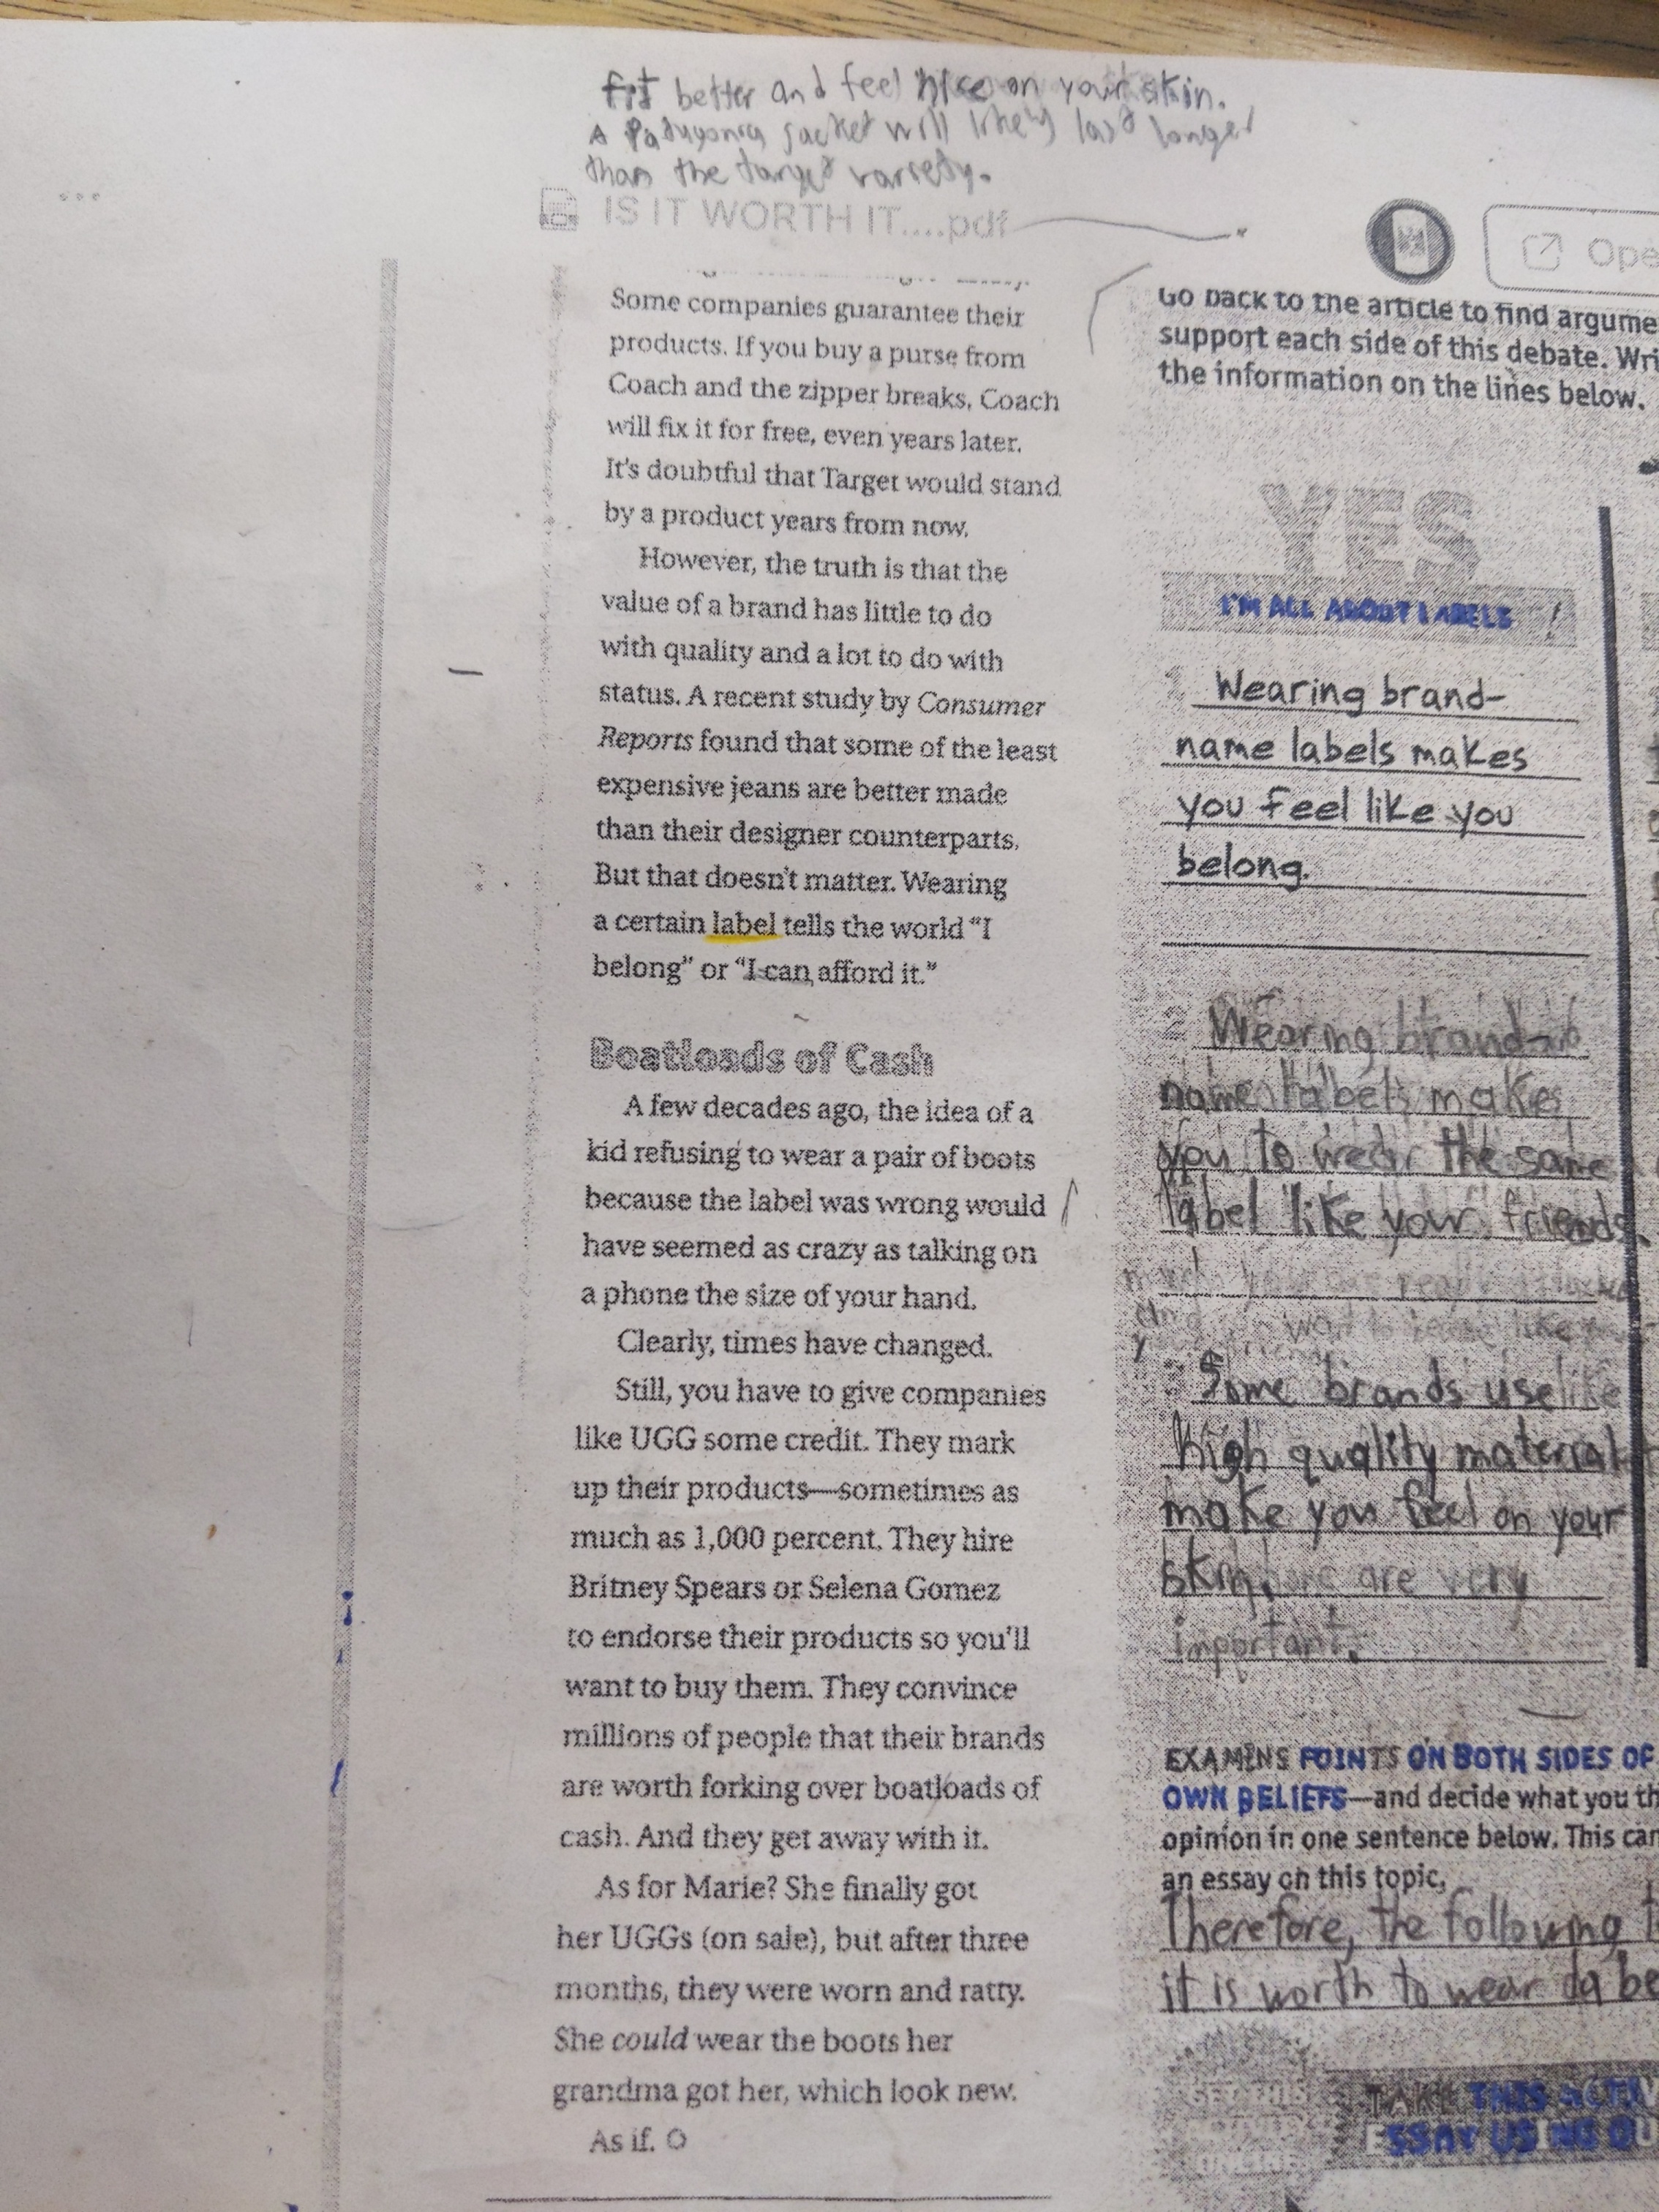 fit better and feel nice on your skin.
A Patuyonia jacket will likely last longer
than the target variety.
IS IT WORTH IT....pdf
Some companies guarantee their
products. If you buy a purse from
Coach and the zipper breaks, Coach
will fix it for free, even years later.
It's doubtful that Target would stand
by a product years from now.
However, the truth is that the
value of a brand has little to do
with quality and a lot to do with
status. A recent study by Consumer
Reports found that some of the least
expensive jeans are better made
than their designer counterparts.
But that doesn't matter. Wearing
a certain label tells the world “I
belong” or “I can afford it.”
Boatloads of Cash
A few decades ago, the idea of a
kid refusing to wear a pair of boots
because the label was wrong would
have seemed as crazy as talking on
a phone the size of your hand.
Clearly, times have changed.
Still, you have to give companies
like UGG some credit. They mark
up their products—sometimes as
much as 1,000 percent. They hire
Britney Spears or Selena Gomez
to endorse their products so you'll
want to buy them. They convince
millions of people that their brands
are worth forking over boatloads of
cash. And they get away with it.
As for Marie? She finally got
her UGGs (on sale), but after three
months, they were worn and ratty.
She could wear the boots her
grandma got her, which look new.
As if.
Ope
Go back to the article to find argume
support each side of this debate. Wri
the information on the lines below.
YES
I'M ALL ABOUT LABELS !
1. Wearing brand-
name labels makes
you feel like you
belong.
2. Wearing brand-
name labels makes
you to wear the same
label like your friends.
Some brands use like
high quality material
make you feel on your
skin. are very
important.
EXAMINS POINTS ON BOTH SIDES OF
OWN BELIEFS—and decide what you th
opinion in one sentence below. This can
an essay on this topic.
Therefore, the following t
it is worth to wear la be
TAKE THIS ACTIV
ESSAY USING OU